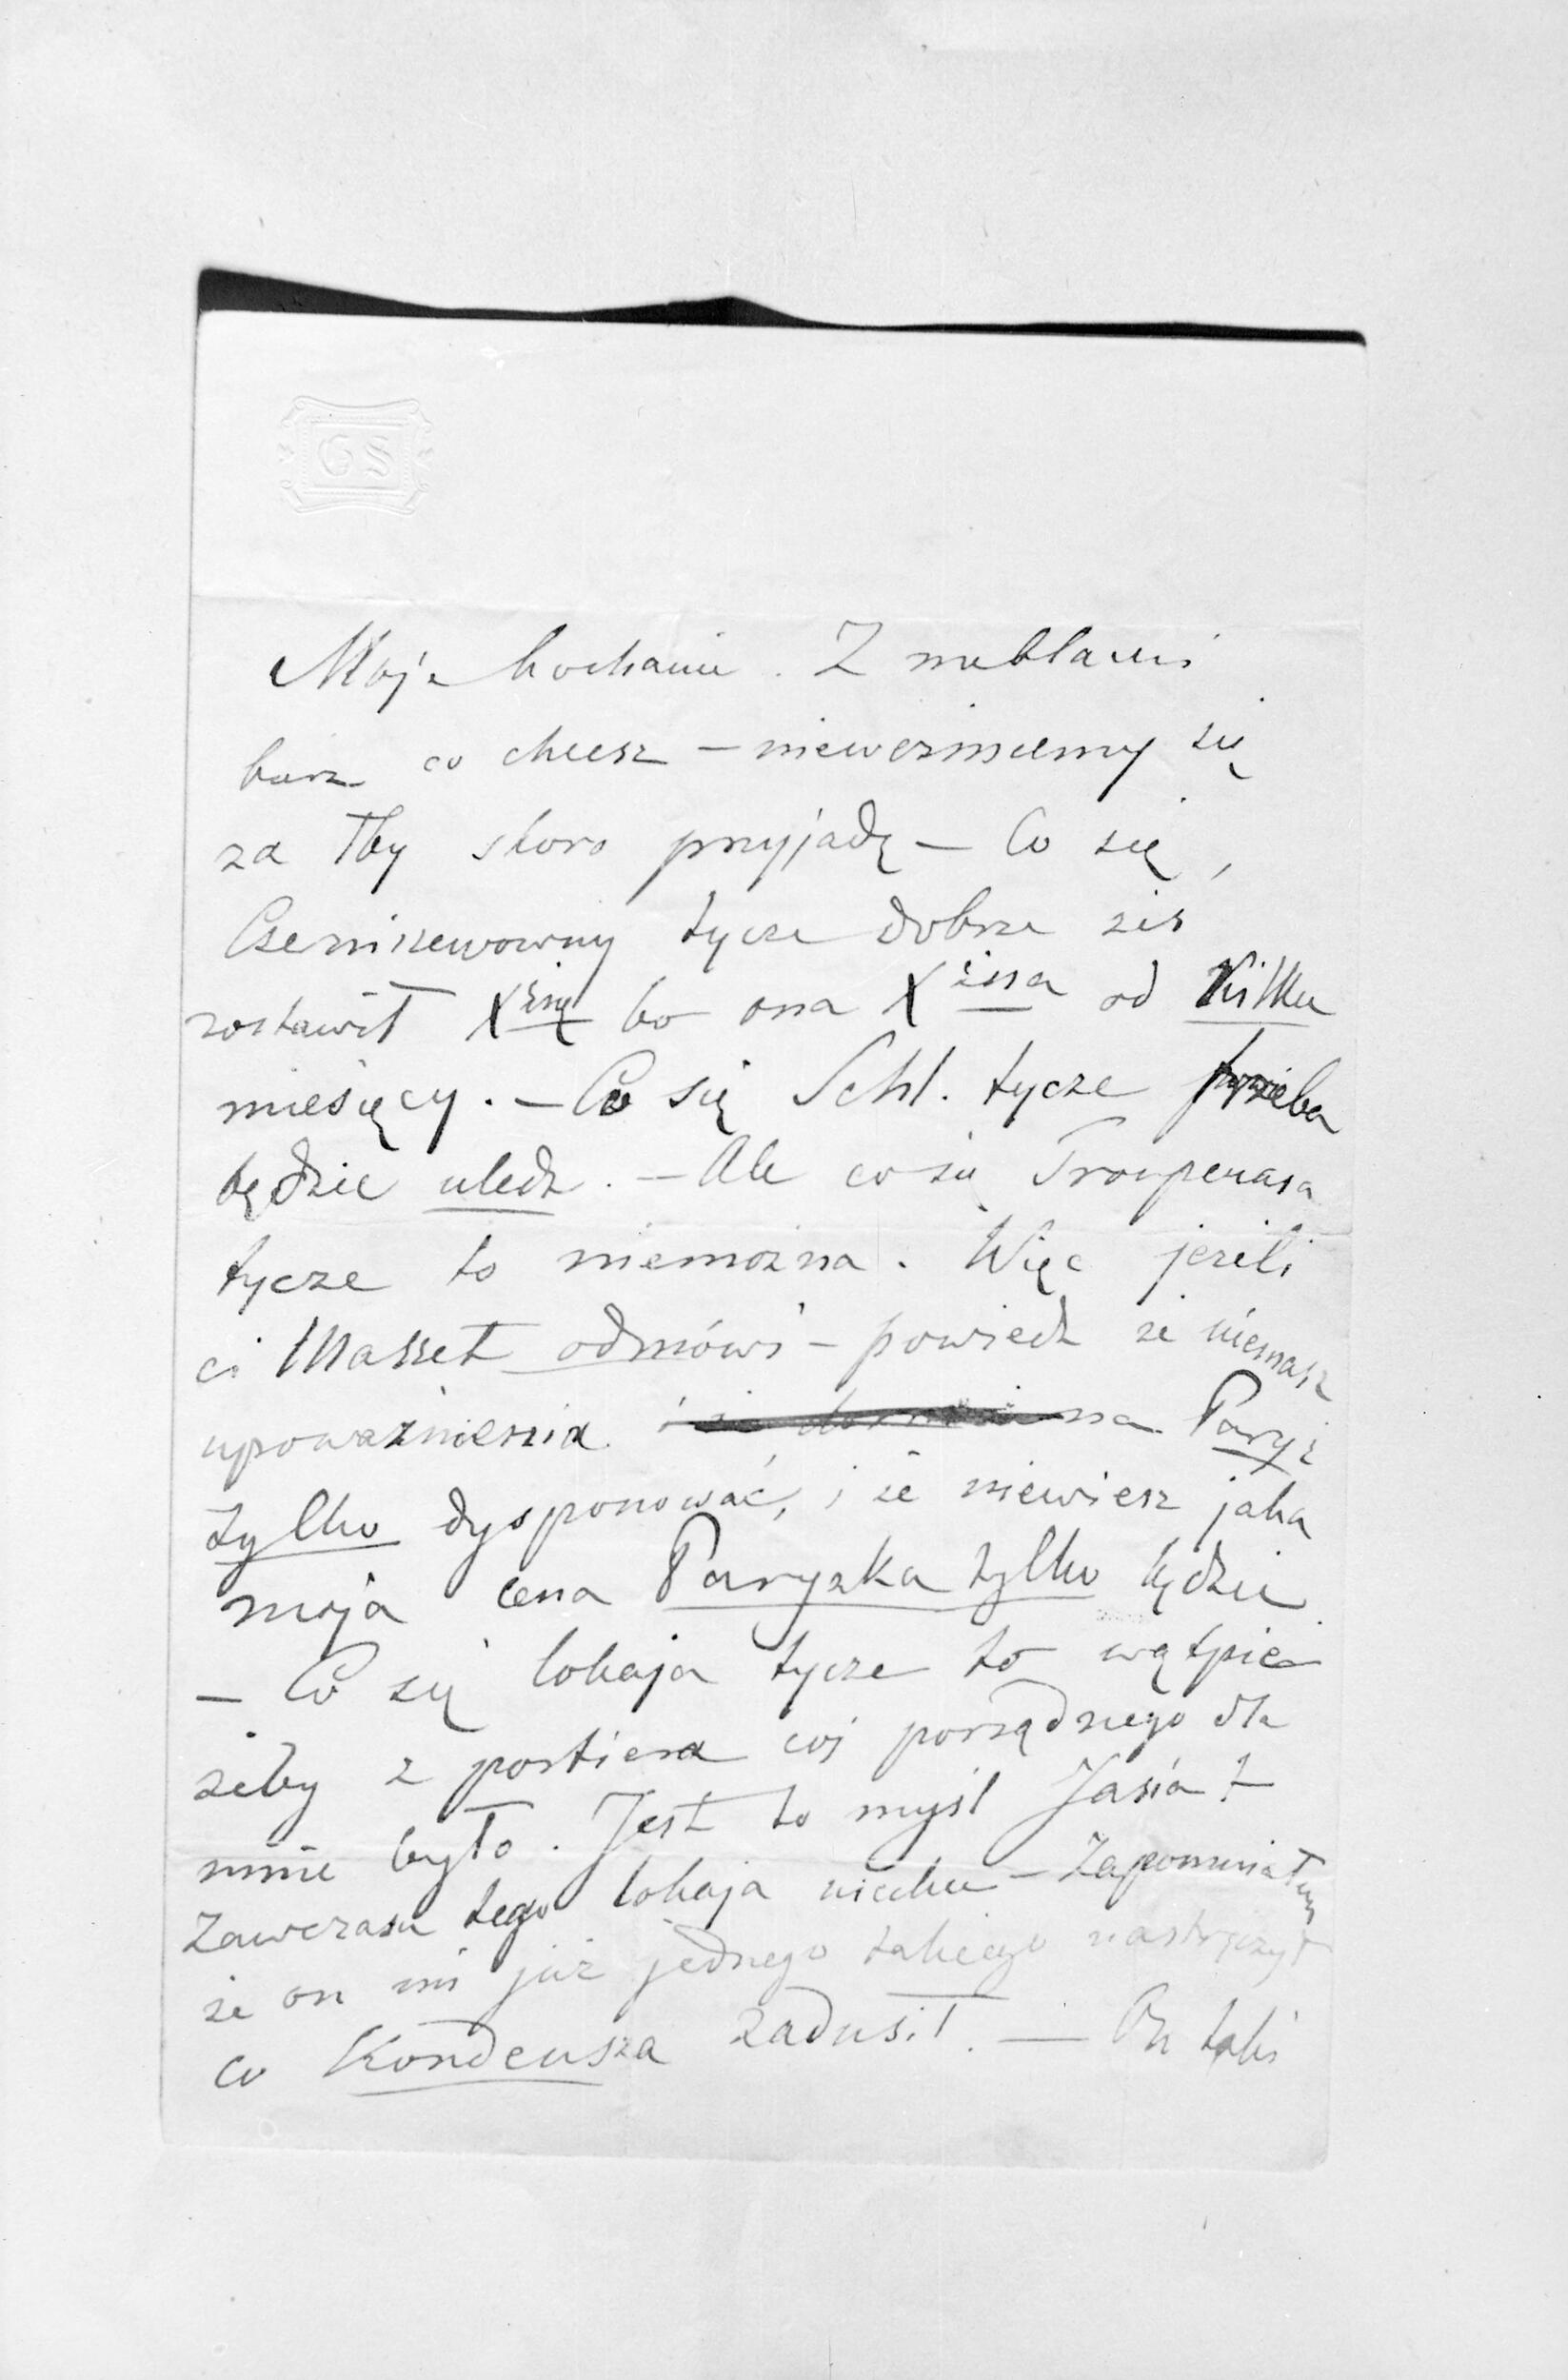 GS
Moje kochanie. Z meblami
burz co chcesz – niewezmiemy się
za łby skoro przyjadę – Co się
Czerniszewowny tycze dobrze żeś
zostawił Xżnę bo ona Xżna od Kilku
miesięcy. – Co się Schl. tycze trzeba
będzie uledz. – Ale co się Troupenasa
tycze to niemożna. Więc jeżeli
ci Masset odmówi – powiedz że niemasz
upoważnienia na Paryż
tylko dysponować, i że niewiesz jaka
moja cena Paryzka tylko będzie
– Co się lokaja tycze to wątpię
żeby z portiera coś porządnego dla
mnie było. Jest to myśl Jasia?
Zawczasu tego lokaja niechcę – Zapomniałem
że on mi już jednego takiego nastręczył
co Kondeusza zadusił. — On taki